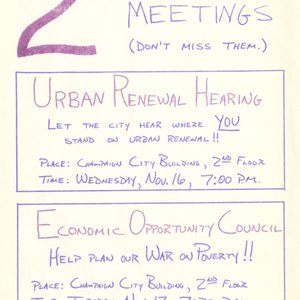 2
MEETINGS
(DON'T MISS THEM.)
URBAN RENEWAL HEARING
LET THE CITY HEAR WHERE YOU
STAND ON URBAN RENEWAL!!
PLACE: CHAMPAIGN CITY BUILDING, 2ND FLOOR
TIME: WEDNESDAY, NOV. 16, 7:00 P.M.
ECONOMIC OPPORTUNITY COUNCIL
HELP PLAN OUR WAR ON POVERTY!!
PLACE: CHAMPAIGN CITY BUILDING, 2ND FLOOR